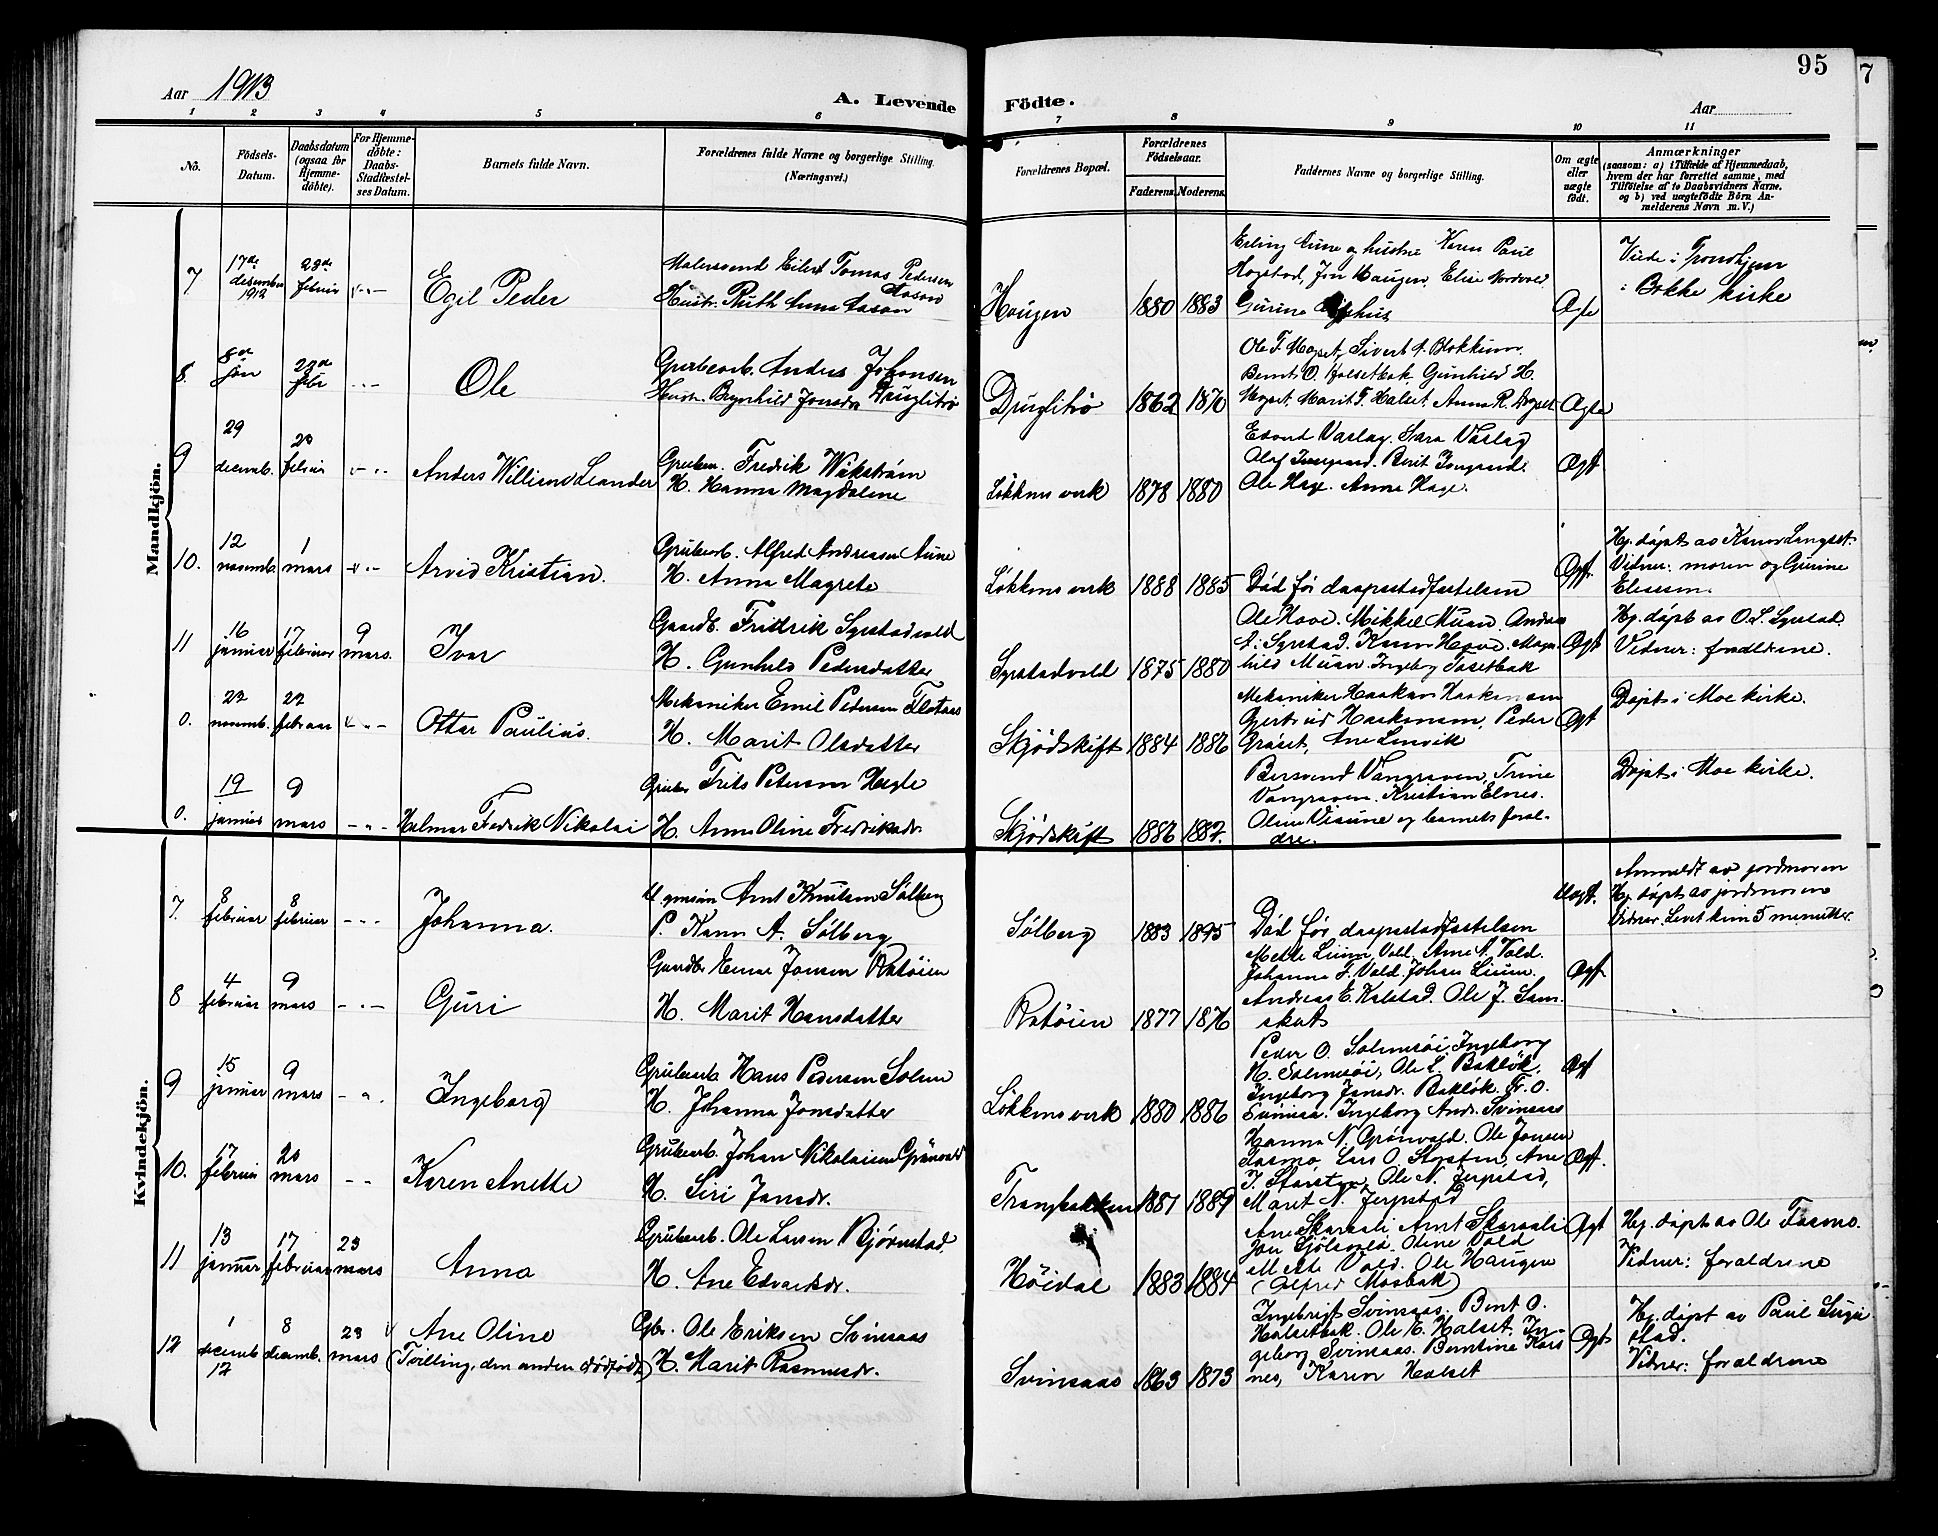 95
7
Aar 1913
A. Levende Födte.
Aar
1 2 3 4 5 6 7 8 9 10 11
No.
Födsels-Datum.
Daabsdatum (ogsaa for Hjemme-döbte).
For Hjemme-döbte: Daabs-Stadfæstel-ses Datum.
Barnets fulde Navn.
Forældrenes fulde Navne og borgerlige Stilling. (Næringsvei.)
Forældrenes Bopæl.
Forældrenes Födselsaar.
Faderens. Moderens.
Faddernes Navne og borgerlige Stilling.
Om ægte eller uægte födt.
Anmærkninger
(saasom: a) i Tilfælde af Hjemmedaab, hvem der har forrettet samme, med Tilföielse af to Daabsvidners Navne, og b) ved uægtefödte Börn An-melderens Navn m. V.)
Mandkjön.
7 17de desember 1912 23de februar Egil Peder
Malersvend Eilert Tomas Pedersen Aason
Hustr. Ruth Anna Aason
Haugen 1880 1883
Erling Aune og hustru Karen Paul
Hogstad, Jon Haugen, Elise Nordvold
Gurine
Ægte
Viede i Trondhjem
i Bakke kirke
8. 8de jan 23de febr Ole
Grubearb. Anders Johansen
Hustr. Brynhild Jonsdr Druglitrø
Druglitrø 1862 1870
Ole F. Hogset, Sivert A. Blokkum
Bernt O. Halsetbak, Gunhild H.
Hogset. Marit F. Halset. Anna R. Hogset
Ægte
9 29 decemb. 23 februar Anders William Leander
Gruben. Fredrik Wikstrøm
H. Hanna Magdalene
Løkkens verk 1878 1880
Edvard Vaslag. Sara Vaslag
Olaf Berit
Ole Hage. Anne Hage.
Ægt
10. 12 novemb. 1 mars Arvid Kristian.
Grubearb. Alfred Andreasen Aune
H. Anna Magrete
Løkkens verk 1888 1885
Død før daapsstadfestelsen
Ægt.
Hj. døpt av Karen Langset.
Vidner: moren og Gurine
Eliesen.
11 16 januar 17 februar 9 mars. Ivar
Gaardb. Fridrik Syrstadvold
H. Gunhild Pedersdatter
Syrstadvold 1875 1880
Ole Hove. Mikkel Muan. Anders
A. Syrstad. Karen Hove. Magn
hild Muan. Ingeborg Tosetbak
Ægt
Hj. døpt av O. S. Syrstad.
Vidner: foreldrene.
0. 22 novemb. 22 februar Ottar Paulius.
Mekaniker Emil Pedersen Flotaas
H. Marit Olsdatter
Skjødskift 1884 1886
Mekaniker Haakon Haakonsen
Gjertrud Haakonsen, Peder
Grøset, Ane Lenvik
Ægt
Døpt i Moe kirke.
0. 19 januar 9 mars Halmar Fredrik Nikolai
Gruben Frits Petersen Hagle
H. Anna Oline Fredriksdr.
Skjødskift 1886 1882.
Bersvend Vangraven, Trine
Vangraven. Kristian Elnes.
Oline Visune og barnets foræl-
dre.
Døpt i Moe kirke.
Kvindekjön.
7. 8 februar 8 februar Johanna.
Arnt Knutsen Sølberg
P. Karen A. Sølberg
Sølberg 1883 1895
Død før daapsstadfestelsen
Uægt.
Anmeldt av jordmoren
Hj. døpt av jordmoren
Vidner. Levet kun 5 minutter.
8 4 februar 9 mars Guri
Gaardbr Einar Jonsen Ratøien
H. Marit Hansdatter
Ratøien 1877 1876
Mette Lium Vold, Arne A. Vold.
Johanna F. Vold. Johan Lium.
Andreas E. Kalstad. Ole J. Sam-
skat
Ægt.
9 15 januar 9 mars Ingeborg
Grubearb Hans Pedersen Solem
H. Johanna Jonsdatter
Løkkens verk 1880 1886
Peder O. Solemsøi, Ingeborg
H. Solemsøi, Ole L. Bakløk,
Ingeborg Jonsdr. Bakløk. O.
Svinsaa. Ingeborg Andr. Svinsaas
Ægt
10. 17 februar 20 mars Karen Anette
Grubearb. Johan Nikolaisen Grønvold
H. Siri Jonsdr.
Trangbakken 1881 1889
Hanna N. Grønvold. Ole Jonsen
Fosmo, Lars O. Storsten, Ane
J. Storsten, Ole N. Jerpstad,
Marit N. Jerpstad
Ægt.
11 13 januar 17 februar 23 mars Anna
Grubearb. Ole Larsen Bjørnstad.
H. Ane Edvardsdr.
Høidal 1883 1884
Ane Skaraali Arnt Skaraali
Jon Gjølsvold. Oline Vold
Mette Vold. Ole Haugen
(Alfred Mosbak)
Ægt
Hj. døpt av Ole Fosmo.
Vidner: foreldrene
12 1 decemb. 12 8 decemb. 23 mars Ane Oline
(Tvilling, den anden dødfødt)
Gbr. Ole Eriksen Svinsaas
H. Marit Rasmusdr.
Svinsaas 1863 1873
Ingebrigt Svinsaas. Bent O.
Halsetbak. Ole E. Halset. In-
geborg Svinsaas. Berntine Kors
nes, Karen Halset
Ægt
Hj. døpt av Paul Sugu
stad.
Vidner: foreldrene